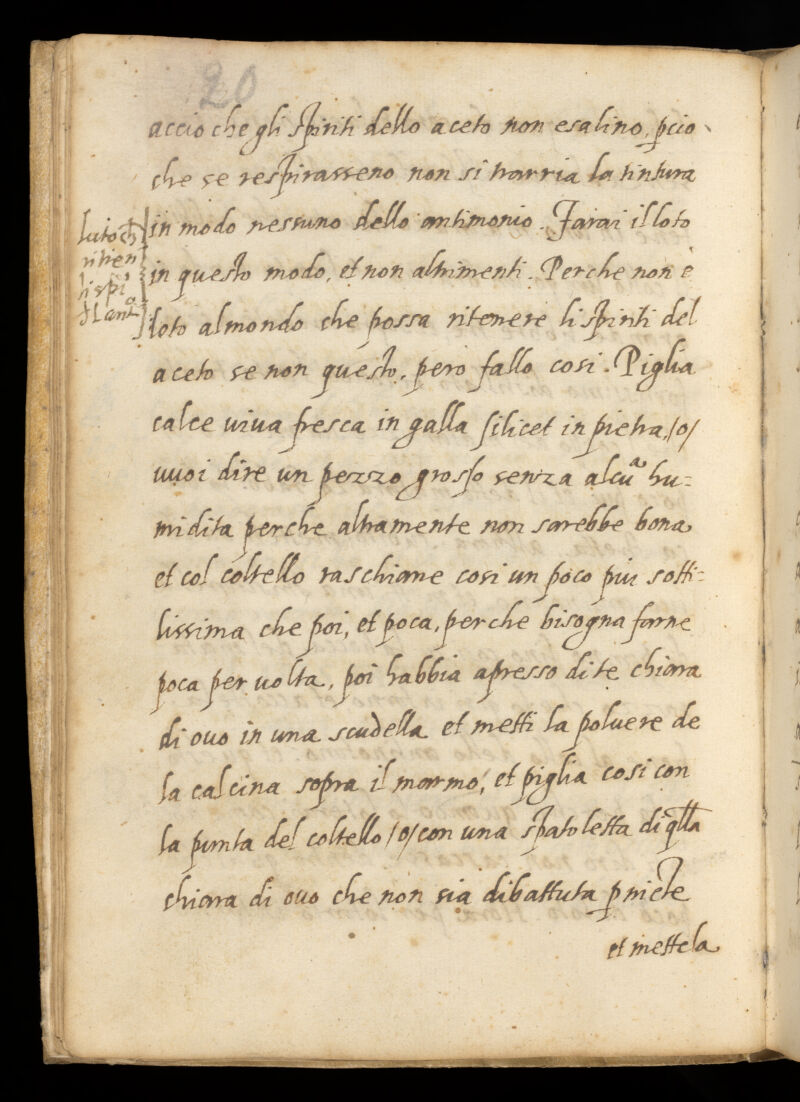 20
accio che gli spiriti dello aceto non esalino, pcio
che se respirasseno non si trarria la tintura
in modo nessuno dello antimonio. Farai il loto
in questo modo, et non altrimenti. Perche non è
loto al mondo che possa ritenere li spiriti del
aceto se non questo, pero fallo cosi. Piglia
calce viva fresca in galla silicet in pietra, /o/
vuoi dire un pezzo grosso senza alcūa hu=
midita perche altramente non sarebbe bona
et col coltello raschiane cosi un poco piu sotti=
lissima che poi, et poca, perche bisogna farne
poca per volta, poi habbia apresso di te chiara
di ovo in una scudella et metti la polvere de
la calcina sopra il marmo, et piglia cosi con
la punta del coltello /o/ con una spatoletta di qlla
chiara di ovo che non sia dibattuta p niete
et mettela
luto ch
ritien
li spi